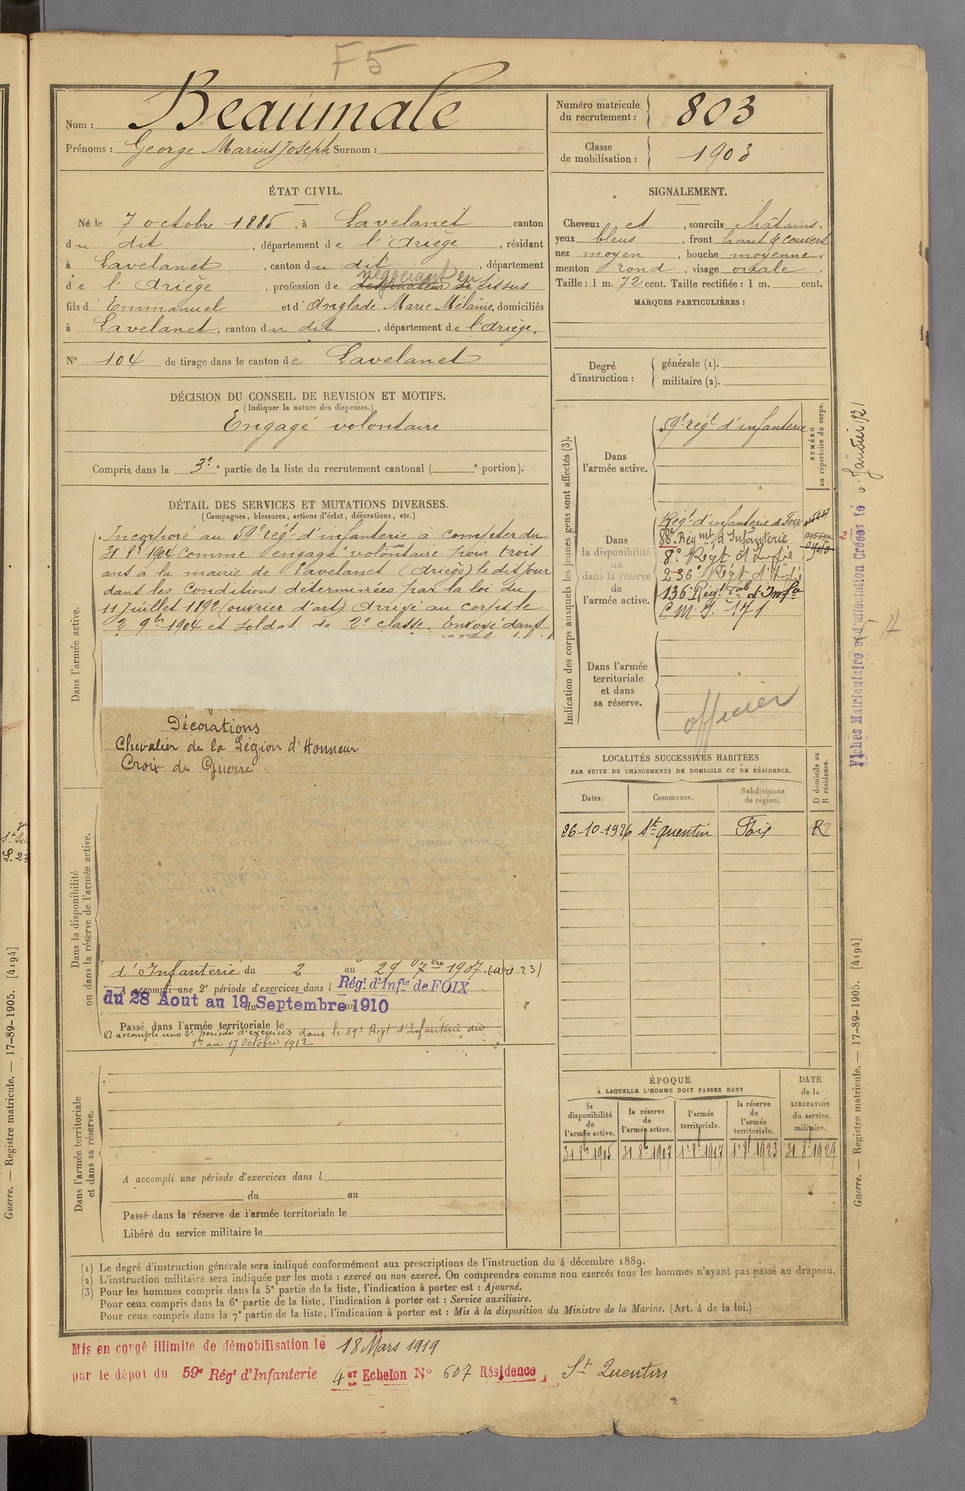 F5
Nom : Beaumale
Prénoms : George Marius Joseph Surnom :
Numéro matricule du recrutement : 803
Classe de mobilisation : 1903
ÉTAT CIVIL.
Né le 7 octobre 1885, à Lavelanet canton
du dit, département de l'Ariège, résidant
à Lavelanet, canton du dit, département
de l'Ariège, profession de négociant en tissus
fils d'Emmanuel et d'Anglade Marie Mélanie, domiciliés
à Lavelanet, canton du dit, département de l'Ariège.
N° 104 de tirage dans le canton de Lavelanet
SIGNALEMENT.
Cheveux et, sourcils châtains.
yeux bleus, front haut & couvert
nez moyen, bouche moyenne
menton rond, visage ovale.
Taille : 1 m. 72 cent. Taille rectifiée : 1 m. cent.
MARQUES PARTICULIÈRES :
Degré d'instruction :
générale (1).
militaire (2).
DÉCISION DU CONSEIL DE REVISION ET MOTIFS.
(Indiquer la nature des dispenses.)
Engagé volontaire
Compris dans la 3e partie de la liste du recrutement cantonal ( e portion).
DÉTAIL DES SERVICES ET MUTATIONS DIVERSES.
(Campagnes, blessures, actions d'éclat, décorations, etc.)
Dans l'armée active.
Incorporé au 59e régt d'infanterie à compter du
31 8bre 1904 comme engagé volontaire pour trois
ans à la mairie de Lavelanet (Ariège) le dit jour
dans les conditions déterminées par la loi du
11 juillet 1892 (ouvrier d'art) Arrivé au corps le
2 9bre 1904 et soldat de 2e classe. Envoyé dans
Décorations
Chevalier de la Légion d'Honneur
Croix de Guerre
Dans la disponibilité
ou dans la réserve de l'armée active.
d'Infanterie du 2 au 29 7bre 1907
A accompli une 2e période d'exercices dans l Régt. d'Infie de FOIX
du 28 Aout au 19 Septembre 1910
Passé dans l'armée territoriale le
A accompli une 2e période d'exercices dans le 59e Régt d'Infanterie du
1er au 17 Octobre 1912
Dans l'armée territoriale
et dans sa réserve.
A accompli une période d'exercices dans l
du au
Passé dans la réserve de l'armée territoriale le
Libéré du service militaire le
Indication des corps auxquels les jeunes gens sont affectés (3).
NUMÉRO
au répertoire du corps.
Dans l'armée active.
59e régt d'infanterie
Dans la disponibilité ou dans la réserve de l'armée active.
Régt d'infanterie de Foix
Régmt d'Infanterie
8e Régt d'Infie
236e Régt d'Infie
136e Régt d'Infie
C M I. 171
Dans l'armée territoriale et dans sa réserve.
officier
LOCALITÉS SUCCESSIVES HABITÉES
PAR SUITE DE CHANGEMENTS DE DOMICILE OU DE RÉSIDENCE.
D domicile ou
R résidence.
Dates. Communes. Subdivisions de région.
26-10-1926 St quentin Foix R
ÉPOQUE
À LAQUELLE L'HOMME DOIT PASSER DANS
la disponibilité de l'armée active.
la réserve de l'armée active.
l'armée territoriale.
la réserve de l'armée territoriale.
DATE de la LIBÉRATION du service militaire.
Fiches Matriculaire et d'affectation Créées le Janvier 1921
(1) Le degré d'instruction générale sera indiqué conformément aux prescriptions de l'instruction du 4 décembre 1889.
(2) L'instruction militaire sera indiquée par les mots : exercé ou non exercé. On comprendra comme non exercés tous les hommes n'ayant pas passé au drapeau.
(3) Pour les hommes compris dans la 5e partie de la liste, l'indication à porter est : Ajourné.
Pour ceux compris dans la 6e partie de la liste, l'indication à porter est : Service auxiliaire.
Pour ceux compris dans la 7e partie de la liste, l'indication à porter est : Mis à la disposition du Ministre de la Marine. (Art. 4 de la loi.)
Mis en congé illimité de démobilisation le 18 Mars 1919
par le dépot du 59e Régt d'Infanterie 4er Echelon N° 607 Résidence St Quentin
Guerre. — Registre matricule. — 17-89-1905. [4194]
Guerre. — Registre matricule. — 17-89-1905. [4194]